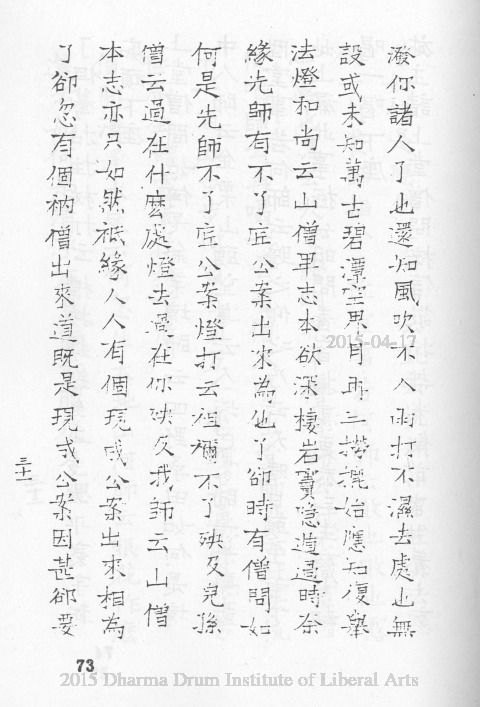 潑你諸人了也還知風吹不入雨打不濕去處也無
設或未知萬古碧潭空界月再三撈摝始應知復舉
法燈和尚云山僧卑志本欲深棲岩竇隱遁過時奈
緣先師有不了底公案出來為他了卻時有僧問如
何是先師不了底公案燈打云祖禰不了殃及兒孫
僧云過在什麼處燈云過在你殃及我師云山僧
本志亦只如然祗緣人人有個現成公案出來相為
了卻忽有個衲僧出來道既是現成公案因甚卻要
三十一
73
2015-04-17
2015 Dharma Drum Institute of Liberal Arts